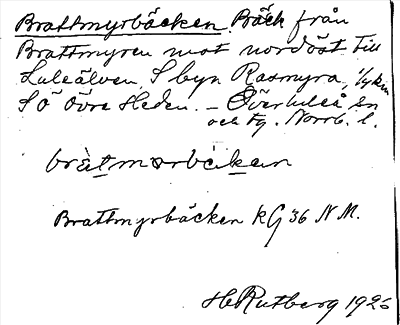 Brattmyrbäcken. Bäck från
Brattmyren mot nordöst till
Luleälven, S byn Rasmyra, 1/4 km
S ö övre Heden. – Överluleå sn
och tg. Norrb. l.
bràtmᴔrbäkan
Brattmyrbäcken KG 36 NM.
H Rutberg 1926